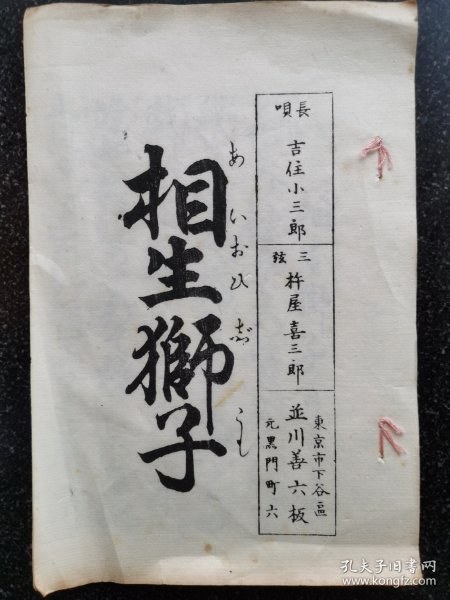 長唄
吉住小三郎
三弦
杵屋喜三郎
東京市下谷區
並川善六板
元黒門町六
あいおひ
相生獅子
孔夫子旧书网
www.kongfz.com